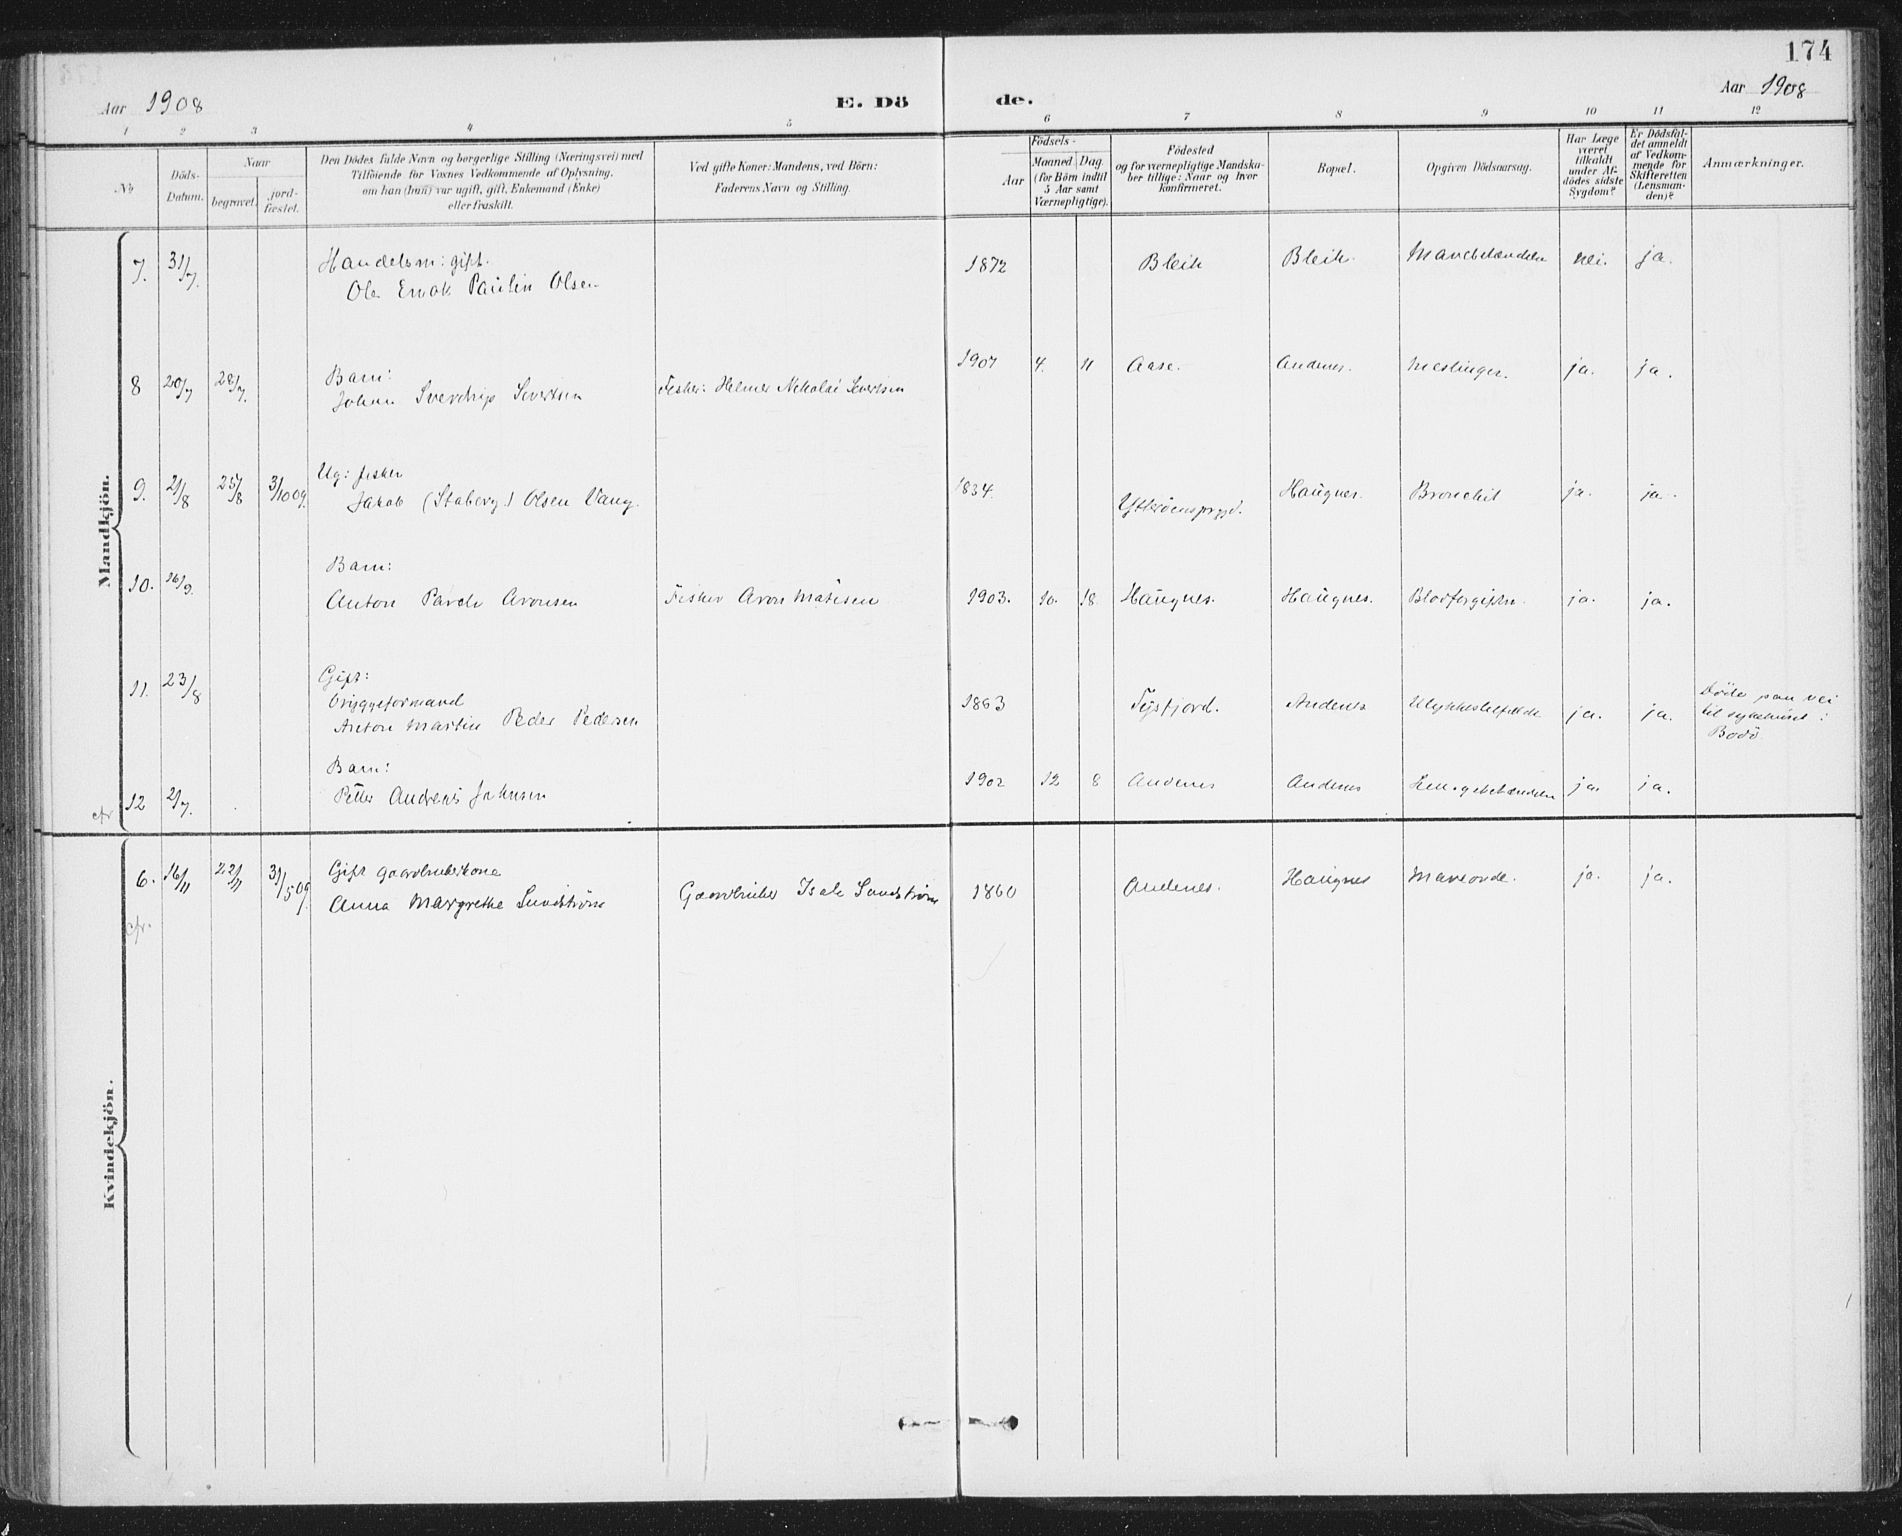 174
Aar 1908
E. Dö de.
Aar 1908
1 2 3 4 5 6 7 8 9 10 11 12
No
Döds-Datum.
Naar
begravet.
jord-fæstet.
Den Dödes fulde Navn og borgerlige Stilling (Næringsvei) med
Tilföiende for Voxnes Vedkommende af Oplysning,
om han (hun) var ugift, gift, Enkemand (Enke)
eller fraskilt.
Ved gifte Koner: Mandens, ved Börn:
Faderens Navn og Stilling.
Födsels-
Aar
Maaned Dag
(for Börn indtil
5 Aar samt
Værnepligtige).
Födested
og for værnepligtige Mandska-
ber tillige: Naar og hvor
konfirmeret.
Bopæl.
Opgiven Dödsaarsag.
Har Læge
været
tilkaldt
under Af-
dödes sidste
Sygdom?
Er Dödsfal-
det anmeldt
af Vedkom-
mende for
Skifteretten
(Lensman-
den)?
Anmærkninger.
Mandkjön.
7. 31/7. Handelsm: gift. 1872 Bleik Bleik. nei. ja.
Ole Enok Paulin Olsen
8 20/7 28/7. Barn: 1907 4. 11 Aase. Andenes. Meslinger. ja. ja.
Johan Sverdrup Sivertsen Fisker: Helmer Nikolai Sivertsen
9. 21/8 25/8 3/10 09. Ug: fisker 1834. Haugnes. Bronchit ja. ja.
Jakob (Staberg) Olsen Vang.
10. 16/9. Barn:
Anton Parele Aronsen Fisker Aron Matisen 1903. 10. 18. Haugnes. Haugnes. Blodforgiftn. ja. ja.
11. 23/8 Gift:
Bryggeformand 1863 Tysfjord. Andenes Ulykkestilfælde ja. ja. Døde paa vei
Anton Martin Peder Pedersen til sykehuset i
Bodö.
cfr 12 2/7. Barn: 1902 12 8 Andenes Andenes Lungebetændelse ja. ja.
Petter Andreas Johnsen
Kvindekjön.
6. 16/11 22/11 31/5 09. Gift gaardbrukerkone Haugnes ja. ja.
Anna Margrethe Sundström Gaardbruker Isak Sundström 1860 Andenes.
cfr.